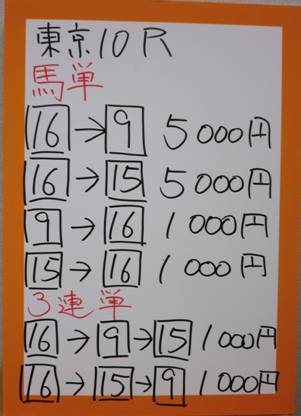 東京10R
馬単
16→9 5000円
16→15 5000円
9→16 1000円
15→16 1000円
3連単
16→9→15 1000円
16→15→9 1000円